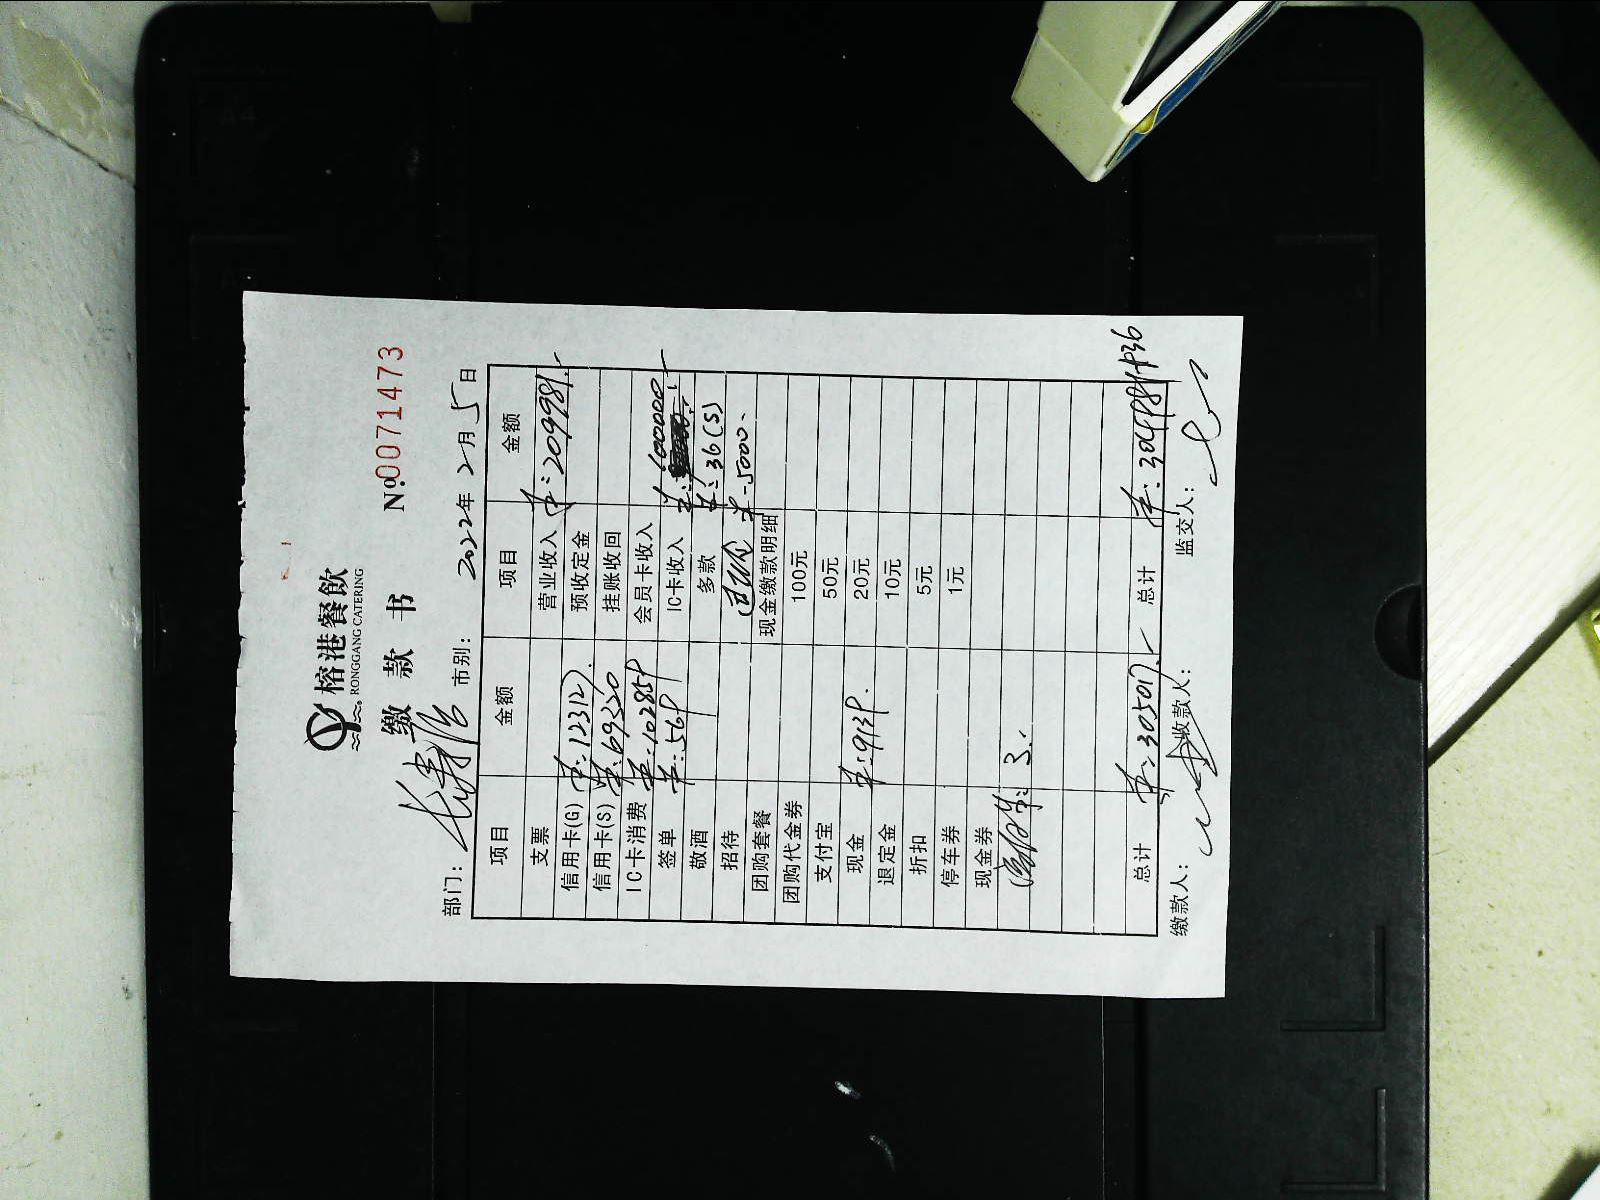 榕港餐飲
RONGGANG CATERING
缴款书 №0071473
部门: 市别: 2022年2月5日
项目 金额 项目 金额
支票 营业收入 ¥:209981.-
信用卡(G) ¥:123127. 预收定金
信用卡(S) ¥:69320 挂账收回
IC卡消费 ¥:102859 会员卡收入
签单 ¥:569 IC卡收入 ¥:100000.-
敬酒 多款 ¥:36(S)
招待 ¥-5000.
团购套餐 现金缴款明细
团购代金券 100元
支付宝 50元
现金 ¥:9139. 20元
退定金 10元
折扣 5元
停车券 1元
现金券
3.-
总计 ¥:305017.- 总计 ¥:304981+36
缴款人: 收款人: 监交人: